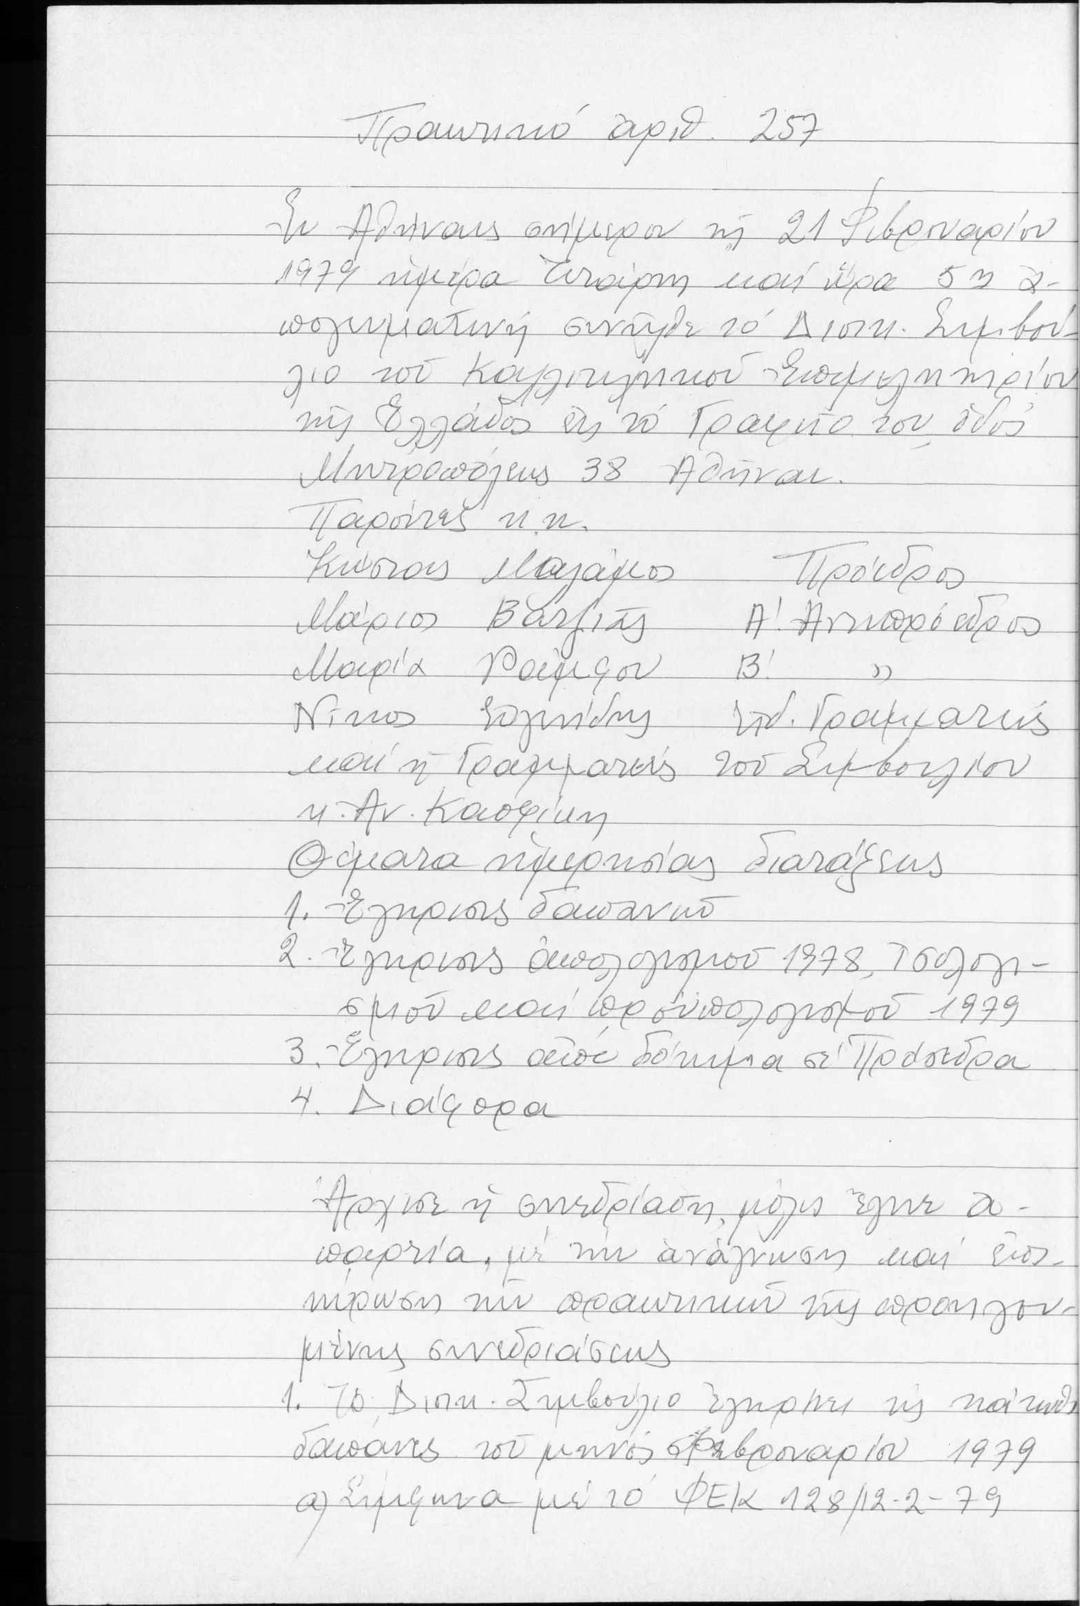 Πρακτικό ἀριθ. 257
Ἐν Ἀθήναις σήμερον τῇ 21 Φεβρουαρίου
1979 ἡμέρα Τετάρτη καί ὥρα 5η ἀ-
πογευματινή συνῆλθε τό Διοικ. Συμβού-
λιο τοῦ Καλλιτεχνικοῦ Ἐπιμελητηρίου
τῆς Ἑλλάδος εἰς τά Γραφεῖα του, ὁδός
Μητροπόλεως 38 Ἀθῆναι.
Παρόντες κ.κ.
Κώστας Μαλάμος Πρόεδρος
Μάριος Βατζιᾶς Α'. Ἀντιπρόεδρος
Μαρία Ράμφου Β' "
Νῖκος Γραμματεύς
καί ἡ Γραμματεύς τοῦ Συμβουλίου
κ. Αν. Κασφίκη
Θέματα ἡμερησίας διατάξεως
1. Ἔγκρισις δαπανῶν
2. Ἔγκρισις ἀπολογισμοῦ 1978, Ἰσολογι-
σμοῦ καί προϋπολογισμοῦ 1979
3. Ἔγκρισις ἀπό δόκιμα σέ Πρόσεδρα
4. Διάφορα
Ἄρχισε ἡ συνεδρίαση, μόλις ἔγινε ἀ-
παρτία, μέ τήν ἀνάγνωση καί ἐπι-
κύρωση τῶν πρακτικῶν τῆς προηγου-
μένης συνεδριάσεως
1. Τό Διοικ. Συμβούλιο ἐγκρίνει τίς κάτωθι
δαπάνες τοῦ μηνός Φεβρουαρίου 1979
α) Σύμφωνα μέ τό ΦΕΚ 128/12-2-79